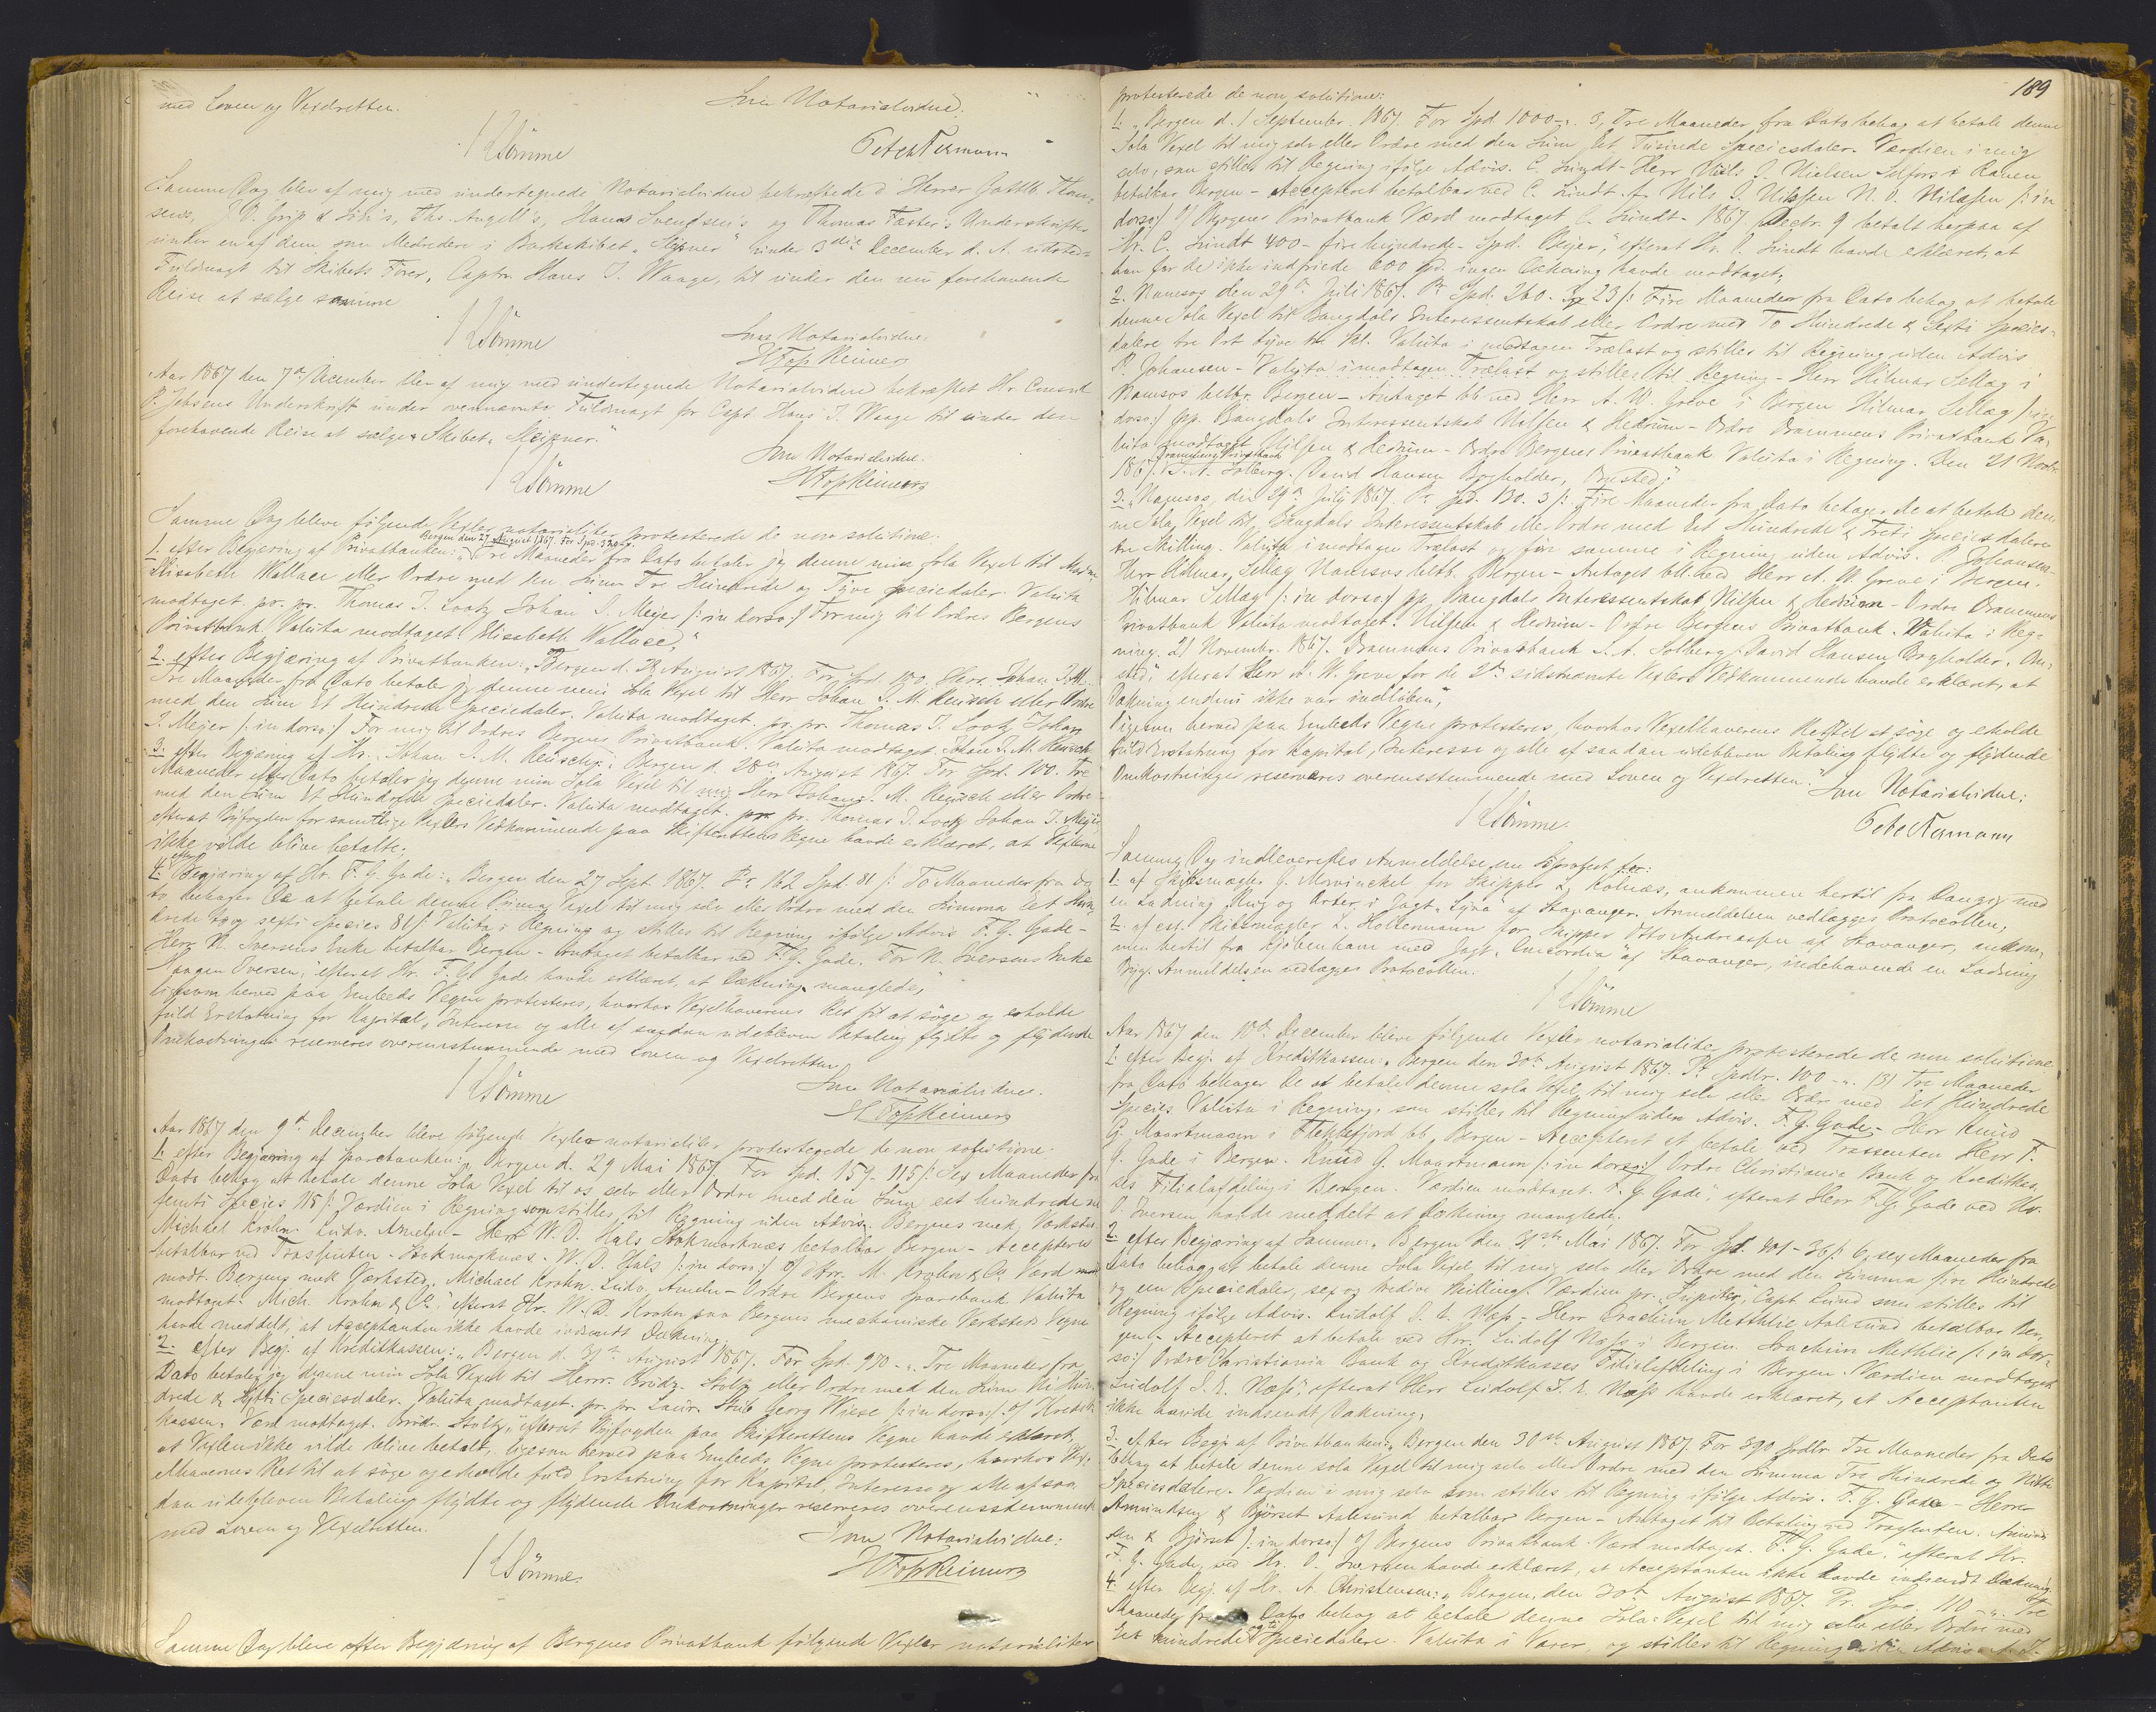 med Loven og Vexelretten.
Som Notarialvidne:
Peter Nermann
Samme Dag blev af mig med undertegnede Notarialvidne bekræftede d Herrer Gottlb. Thom-
sens, J. D. Grip & Søn's, Ths. Angell's, Hans Svendsen's og Thomas Faster's Underskrifter
under en af dem som Medredere i Barkskibet "Sleipner" under 3die December d. A. udsted-
Fuldmagt til Skibets Fører, Captn. Hans J. Waage, til under den nu forehavende
Reise at sælge samme
Som Notarialvidne:
H Fop Reimers
Aar 1867 den 7de December blev af mig med undertegnede Notarialvidne bekræftet Hr. Consul
P. Jebsens Underskrift under ovennævnte Fuldmagt for Capt Hans J. Waage til under den
forehavende Reise at sælge Skibet "Sleipner."
Som Notarialvidne.
H Fop Reimers
Samme Dag bleve følgende Vexler notarialiter protesterede de non solutione:
Bergen den 27 August 1867. For Spd. 320-
1. efter Begjæring af Privatbanken: "Tre Maaneder fra Dato betaler jeg denne min Sola Vexel til Madme
Elisabeth Wallace eller Ordre med den Sum Tre Hundrede og Tyve Speciedaler. Valuta
modtaget. pr. pr. Thomas J. Lootz Johan J. Meyer /: in dorso:/ For mig til Ordres Bergens
Privatbank Valuta modtaget Elisabeth Wallace",
2. efter Begjæring af Privatbanken: "Bergen d. 28 August 1867. For Spd. 100. Herr Johan J. M.
Tre Maaneder fra Dato betaler jeg denne min Sola Vexel til Herr Johan J. M. Reusch eller Ordre
med den Sum Et Hundrede Speciedaler. Valuta modtaget. pr. pr. Thomas J. Lootz Johan
J. Meier /: in dorso:/ For mig til Ordres Bergens Privatbank. Valuta modtaget. Johan J. M. Reusch
3. efter Begjæring af Hr. Johan J. M. Reusch: "Bergen d. 28de August 1867. For Spd. 100. Tre
Maaneder efter Dato betaler jeg denne min Sola Vexel til Herr Johan J. M. Reusch eller Ordre
med den Sum Et Hundrede Speciedaler. Valuta modtaget. pr. pr. Thomas J. Lootz Johan J. Meyer
efterat Byfogden for samtlige Vexlers Vedkommende paa Skifterettens Vegne havde erklæret, at Vexlerne
ikke vilde blive betalte;
4. efter Begjæring af Hr. F. G. Gade: "Bergen den 27 Sept. 1867. Pr 162 Spd. 81 /: To Maaneder fra Da-
to behager De at betale denne Prima Vexel til mig selv eller Ordre med den Summa Eet Hun-
drede to og sexti Species 81 /: Valuta i Regning og stilles til Regning ifølge Advis F. G. Gade -
Herr N. Iversens Enke betalbar Bergen - Antaget betalbar ved F. G. Gade. For N. Iversens Enke
Haagen Iversen;" efterat Hr. F. G. Gade havde erklæret, at Dækning manglede;
ligesom herved paa Embeds Vegne protesteres, hvorhos Vexelhaverens Ret til at søge og erholde
fuld Erstatning for Kapital, Interesse og alle af saadan udebleven Betaling flydte og flydende
Omkostninger reserveres overensstemmende med Loven og Vexelretten.
Som Notarialvidne.
H Fop Reimers
Aar 1867 den 9de December bleve følgende Vexler notarialiter protesterede de non solutione:
1. efter Begjæring af Sparebanken: "Bergen d. 29 Mai 1867. For Spd. 159. 115 /: Sex Maaneder fra
Dato behag at betale denne Sola Vexel til os selv eller Ordre med den Sum eet hundrede ni
femti Species 115 /: Værdien i Regning som stilles til Regning uden Advis. Bergens mek. Værksted
Michael Krohn. Ludv. Ameln - Herr W. D. Hals Stokmarknæs betalbar Bergen - Accepteres
betalbar ved Trassenten - Stokmarknæs. W. D. Hals /: in dorso:/ Of Hrr. M. Krohn & Co Værd
modt. Bergens mek Værksted, Michael Krohn. Ludv. Ameln - Ordre Bergens Sparebank. Valuta
modtaget. Mich. Krohn & Co." efterat Hr. W. D. Krohn paa Bergens mechaniske Verksteds Vegne
havde meddelt, at Acceptanten ikke havde indsendt Dækning;
2. efter Begj. af Kreditkassen: "Bergen d. 31te August 1867. For Spd. 970 -". Tre Maaneder fra
Dato betaler jeg denne min Sola Vexel til Herrr. Brødr. Stoltz eller Ordre med den Sum Ni Hun-
drede & Sytti Speciesdaler. Valuta modtaget. pr. pr. Laur. Stub Georg Wiese /: in dorso:/ Of Kredit
kassen. Værd modtaget. Brødr. Stoltz," efterat Byfogden paa Skifterettens Vegne havde erklæret,
at Vexlen ikke vilde blive betalt, ligesom herved paa Embeds Vegne protesteres, hvorhos Vex-
elhavernes Ret til at søge og erholde fuld Erstatning for Kapital, Interesse og alle af saa-
dan udebleven Betaling flydte og flydende Omkostninger reserveres overensstemmende
med Loven og Vexelretten.
Som Notarialvidne:
H Fop Reimers
Samme Dag bleve efter Begjæring af Bergens Privatbank følgende Vexler notarialiter
189
protesterede de non solutione:
1. "Bergen d. 1 September 1867. For Spd 1000-". 3, Tre Maaneder fra Dato behag at betale denne
Sola Vexel til mig selv eller Ordre med den Sum Et Tusinde Speciesdaler. Værdien i mig
selv, som stilles til Regning ifølge Advis. C. Lundt - Herr Niels J. Nielsen Selfors i Ranen
betalbar Bergen - Accepteret betalbar ved C. Lundt. f. Nils J. Nilssen N. O. Nilssen /: in
dorso:/ Of Bergens Privatbank Værd modtaget C. Lundt - 1867 Decbr. 9 betalt herpaa af
Hr. C. Lundt 400 - fire hundrede - Spd. Beyer", efterat Hr. C. Lundt havde erklæret, at
han for de ikke indfriede 600 Spd. ingen Dækning havde modtaget,
2. Namsos den 29de Juli 1867. Pr Spd. 260. 3 23 /: Fire Maaneder fra Dato behag at betale
denne Sola Vexel til Bangdals Interessentskab eller Ordre med To Hundrede & Sexti Species-
dalere tre Ort tyve tre Skl. Valuta i modtagen Trælast og stilles til Regning uden Advis
P. Johansen - Valuta i modtagen Trælast og stilles til Regning - Herr Hilmar Sellæg i
Namsos betbr. Bergen - Antaget blb ved Herr A. W. Greve i Bergen Hilmar Sellæg /: in
dorso:/ pp. Bangdals Interessentskab Nilssen & Hedrum - Ordre Drammens Privatbank Va-
luta modtaget Nilssen & Hedrum - Ordre Bergens Privatbank Valuta i Regning. Den 21 Novbr.
1867. Drammens Privatbank S. A. Solberg. David Hansen Bogholder, Omsted;"
3. "Namsos, den 29de July 1867. Pr Spd. 130. 3 /: Fire Maaneder fra Dato behager De at betale den-
ne Sola Vexel til Bangdals Interessentskab eller Ordre med Eet Hundrede & Treti Speciesdalere
tre Skilling. Valuta i modtagen Trælast og før samme i Regning uden Advis. P. Johansen -
Herr Hilmar Sellæg Namsos betb. Bergen - Antaget blb. ved Herr A. W. Greve i Bergen.
Hilmar Sellæg /: in dorso:/ pp. Bangdals Interessentskab Nilssen & Hedrum - Ordre Drammens
Privatbank Valuta modtaget. Nilssen & Hedrum - Ordre Bergens Privatbank. Valuta i Reg-
ning. 21 November. 1867. Drammens Privatbank S. A. Solberg David Hansen Bogholder. Om-
sted;" efterat Herr A. W. Greve for de 2de sidstnævnte Vexlers Vedkommende havde erklæret, at
Dækning endnu ikke var indløben;
Ligesom herved paa Embeds Vegne protesteres, hvorhos Vexelhaverens Ret til at søge og erholde
fuld Erstatning for Kapital, Interesse og alle af saadan udebleven Betaling flydte og flydende
Omkostninger reserveres overensstemmende med Loven og Vexelretten.
Som Notarialvidne:
Peter Nermann
Samme Dag indleveredes Anmeldelse om Søprotest for:
1. af Skibsmægler J. Mowinckel for Skipper L. Kolnæs, ankommen hertil fra Danzig med
en Ladning Rug og Erter, i Jagt "Lyna" af Stavanger. Anmeldelsen vedlægges Protocollen;
2. af cst. Skibsmægler L. Holtermann for Skipper Otto Andreassen af Stavanger, ankom-
men hertil fra Kjøbenhavn med Jagt "Concordia" af Stavanger, indehavende en Ladning
Byg. Anmeldelsen vedlægges Protocollen.
Aar 1867 den 10de December bleve følgende Vexler notarialiter protesterede de non solutione
1. efter Begj. af Kreditkassen: "Bergen den 30te August 1867. Pr Spdlr. 100 -". (3) Tre Maaneder
fra Dato behager De at betale denne sola Vexel til mig selv eller Ordre med Eet Hundrede
Species Valuta i Regning, som stilles til Regning uden Advis. F. G. Gade - Herr Knud
G. Maartmann i Flekkefjord bb. Bergen - Accepteret at betale ved Trassenten Herr F.
G. Gade i Bergen. Knud G. Maartmann /: in dorso:/ Ordre Christiania Bank og Kreditkas-
ses Filialafdeling i Bergen. Værdien modtaget. F. G. Gade", efterat Herr F. G. Gade ved Hr.
O. Iversen havde meddelt at Dækning manglede;
2. efter Begjæring af Samme: "Bergen den 31te Mai 1867. For Spd. 401 - 36 /: 6, sex Maaneder fra
Dato behag at betale denne Sola Vexel til mig selv eller Ordre med den Summa fire Hundrede
og een Speciedaler, sex og tredive Skilling. Værdien pr. "Jupiter", Capt Lund som stilles til
Regning ifølge Advis. Ludolf J. E. Næss - Herr Joachim Methlie Aalesund betalbar Ber-
gen - Accepteret at betale ved Hrr. Ludolf Næss i Bergen. Joachim Methlie /: in dor-
so:/ Ordre Christiania Bank og Kreditkasses Filialafdeling i Bergen. Værdien modtaget
Ludolf J. E. Næss", efterat Herr Ludolf J. E. Næss havde erklæret, at Acceptanten
ikke havde indsendt Dækning,
3. efter Begj. af Privatbanken: "Bergen den 30te August 1867. For 390 Spdlr. Tre Maaneder fra Dato
behag at betale denne sola Vexel til mig selv eller Ordre med den Summa Tre Hundrede og Nitti
Speciesdalere. Værdien i mig selv som stilles til Regning ifølge Advis. F. G. Gade - Herrer
Amundsen & Bjørset Aalesund betalbar Bergen - Antaget til Betaling ved Trassenten. Amund-
sen & Bjørset /: in dorso:/ Of Bergens Privatbank Værd modtaget. F. G. Gade," efterat Hr.
F. G. Gade, ved Hr. O. Iversen havde erklæret, at Acceptanten ikke havde indsendt Dækning
4. efter Begj. af Hr. A. Christensen: "Bergen, den 30te August 1867. Pr. Spd. 110 -". Tre
Maaneder fra Dato behag at betale denne Sola-Vexel til mig selv eller Ordre med
Eet Hundrede og ti Speciedalere. Valuta i Varer, og stilles til Regning uden Advis